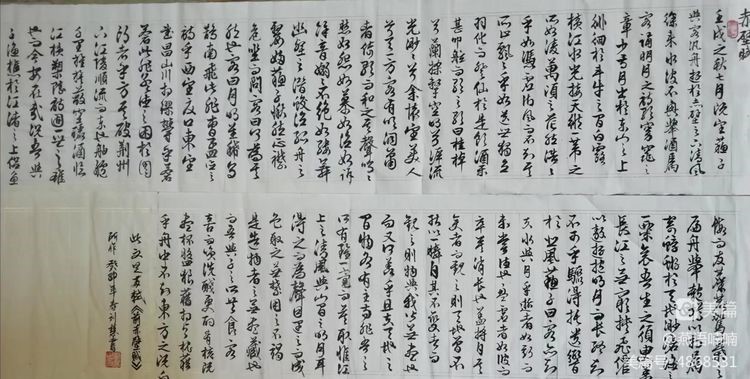 赤壁賦
壬戌之秋七月既望蘇子
與客汎舟遊於赤壁之下清風
徐來水波不興舉酒屬
客誦明月之詩歌窈窕之
章少焉月出於東山之上
徘徊於斗牛之間白露
橫江水光接天縱一葦之
所如凌萬頃之茫然浩浩
乎如馮虛御風而不知其
所止飄飄乎如遺世獨立
羽化而登仙於是飲酒樂
甚扣舷而歌之歌曰桂棹
兮蘭槳擊空明兮泝流
光渺渺兮余懷望美人
兮天一方客有吹洞簫
者倚歌而和之其聲嗚嗚
然如怨如慕如泣如訴
餘音嫋嫋不絕如縷舞
幽壑之潛蛟泣孤舟之
嫠婦蘇子愀然正襟
危坐而問客曰何為其
然也客曰月明星稀烏
鵲南飛此非曹孟德之
詩乎西望夏口東望
武昌山川相繆鬱乎蒼
蒼此非孟德之困於周
郎者乎方其破荊州
下江陵順流而東也舳艫
千里旌旗蔽空釃酒臨
江橫槊賦詩固一世之雄
也而今安在哉況吾與
子漁樵於江渚之上侶魚
蝦而友麋鹿駕一葉之扁
舟舉匏樽以相屬
寄蜉蝣於天地渺滄海之
一粟哀吾生之須臾羨
長江之無窮挾飛仙
以遨遊抱明月而長終知
不可乎驟得託遺響
於悲風蘇子曰客亦知
夫水與月乎逝者如斯而
未嘗往也盈虛者如彼而
卒莫消長也蓋將自其
變者而觀之則天地曾不
能以一瞬自其不變者而
觀之則物與我皆無盡也
而又何羨乎且夫天地之
間物各有主苟非吾之
所有雖一毫而莫取惟江
上之清風與山間之明月耳
得之而為聲目遇之而成
色取之無禁用之不竭
是造物者之無盡藏也
而吾與子之所共食客
喜而笑洗盞更酌肴核既
盡杯盤狼藉相與枕藉
乎舟中不知東方之既白
此文是蘇軾《前赤壁賦》
所作 癸卯年春
美篇
美篇号:4868531